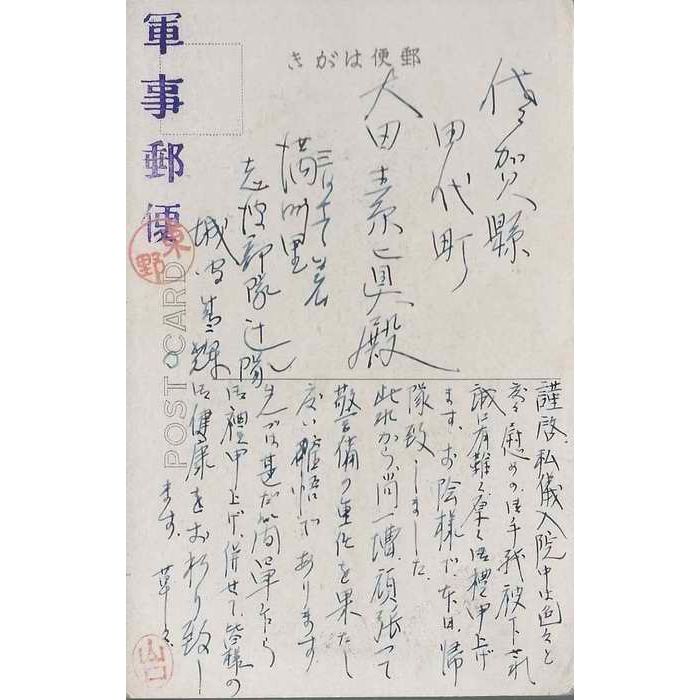 郵便はがき
軍事郵便
POST CARD
佐賀縣
田代町
大田
殿
満州里
志波部隊辻隊
謹啓、私儀入院中は色々と
慰めの御手紙被下され
誠に有難く厚く御禮申上げ
ます。お陰様で本日、帰
隊致しました。
此れから、尚一層頑張って
警備の重任を果たし
度い確悟であります
先づは甚だ簡単乍ら
御禮申上げ、併せて皆様の
御健康をお祈り致し
ます。草々
山口